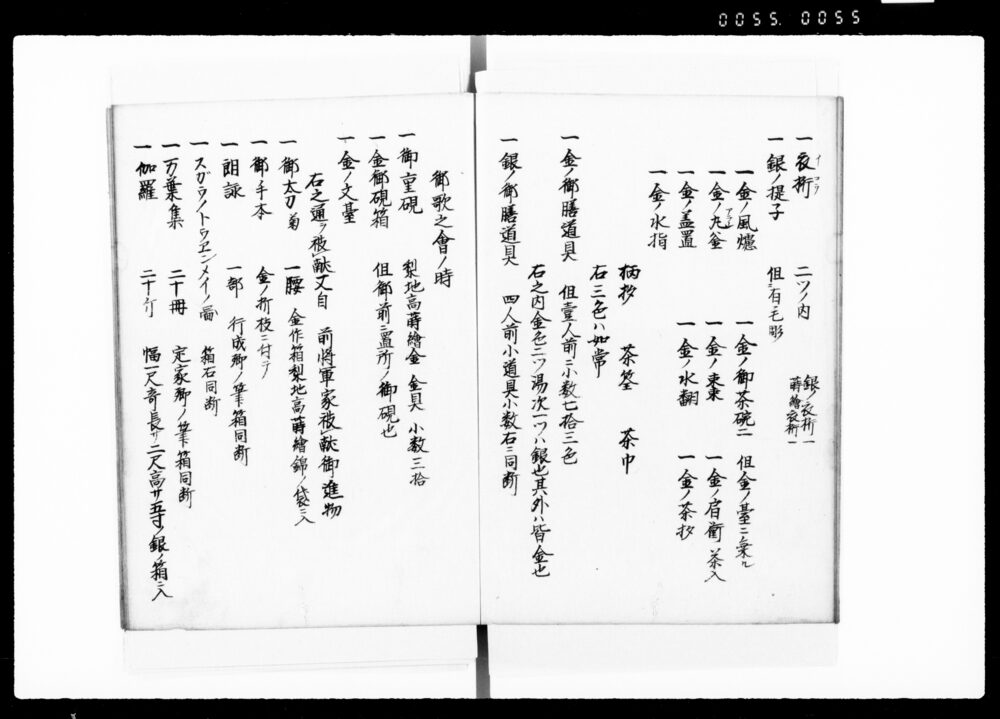 0055.0055
一衣桁 二ツノ内 銀ノ衣桁一
イコウ 蒔繪衣桁一
一銀ノ提子 但有毛彫
一金ノ風爐 一金ノ御茶碗二 但金ノ臺ニ乗ル
一金ノ丸釜 一金ノ束束 一金ノ肩衝茶入
一金ノ盖置 一金ノ水翻 一金ノ茶抄
一金ノ水指
柄抄 茶筌 茶巾
右三色ハ如常
一金ノ御膳道具 但壹人前ニ小数七拾三色
右之内金色二ツ湯次一ツハ銀也其外ハ皆金也
一銀ノ御膳道具 四人前小道具小数右ニ同断
御歌之會ノ時
一御重硯 梨地高蒔繪金金具小数三拾
一金御硯箱 但御前ニ置所ノ御硯也
一金ノ文臺
右之通ヲ被献又自 前将軍家被献御進物
一御太刀菊 一腰 金作箱梨地高蒔繪錦ノ袋ニ入
一御手本 金ノ折枝ニ付テ
一朗詠 一部 行成卿ノ筆箱同断
一スガラノトウヱンメイノ圖 箱右同断
一万葉集 二十冊 定家卿ノ筆箱同断
一伽羅 二十斤 幅一尺奇長サ二尺高サ五寸ノ銀ノ箱ニ入